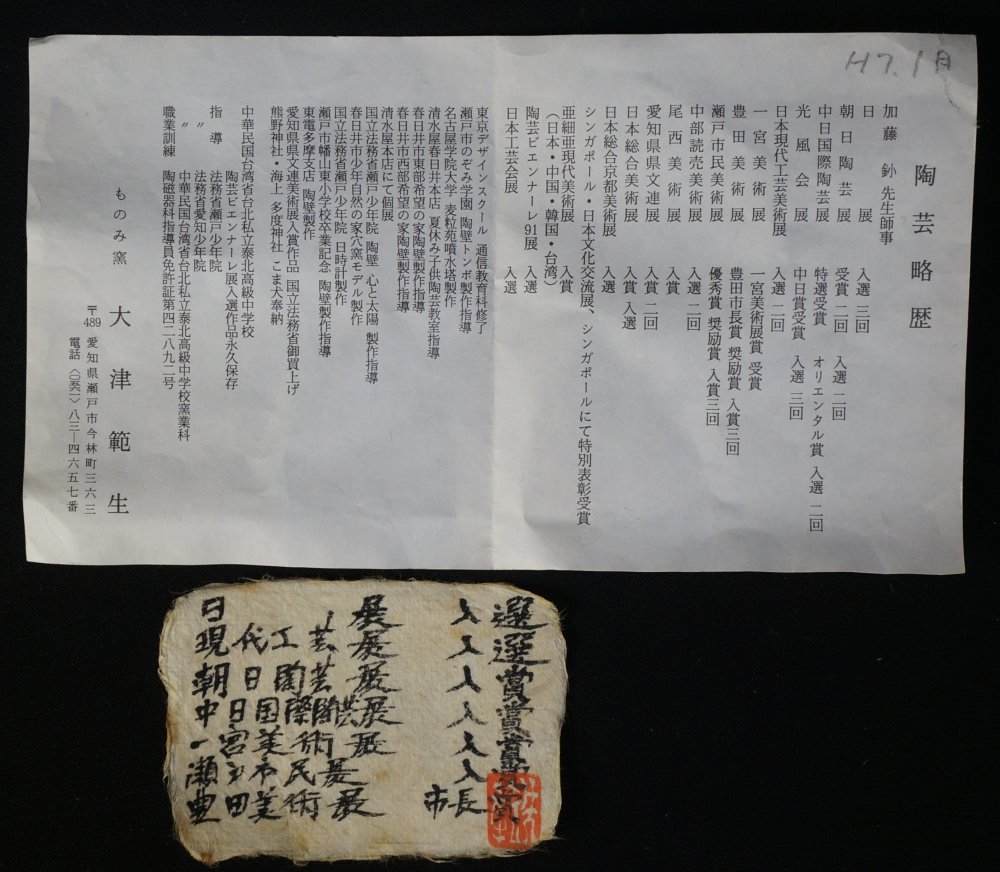 H7.1月
陶芸略歴
加藤 釥先生師事
日展 入選 三回
朝日陶芸展 受賞 二回 入選 二回
中日国際陶芸展 特選受賞 オリエンタル賞 入選 二回
光風会展 中日賞受賞 入選 三回
日本現代工芸美術展 入選 二回
一宮美術展 一宮美術展賞 受賞
豊田美術展 豊田市長賞 奨励賞 入賞三回
瀬戸市民美術展 優秀賞 奨励賞 入賞三回
中部読売美術展 入選 二回
尾西美術展 入賞
愛知県県文連展 入賞 二回
日本総合美術展 入賞 入選
日本総合京都美術展 入選
シンガポール・日本文化交流展、シンガポールにて特別表彰受賞
亜細亜現代美術展 入賞
(日本・中国・韓国・台湾)
陶芸ビエンナーレ91展 入選
日本工芸会展 入選
東京デザインスクール 通信教育科修了
瀬戸市のぞみ学園 陶壁トンボ製作指導
名古屋学院大学 麦粒苑噴水塔製作
清水屋春日井本店 夏休み子供陶芸教室指導
春日井市東部希望の家陶壁製作指導
春日井市西部希望の家陶壁製作指導
清水屋本店にて個展
国立法務省瀬戸少年院 陶壁 心と太陽 製作指導
春日井市少年自然の家穴窯モデル製作
国立法務省瀬戸少年院 日時計製作
瀬戸市幡山東小学校卒業記念 陶壁製作指導
東電多摩支店 陶壁製作
愛知県県文連美術展入賞作品 国立法務省御買上げ
熊野神社・海上 多度神社 こま犬奉納
中華民国台湾省台北私立泰北高級中学校
陶芸ビエンナーレ展入選作品永久保存
指導 法務省瀬戸少年院
〃 法務省愛知少年院
〃 中華民国台湾省台北私立泰北高級中学校窯業科
職業訓練 陶磁器科指導員免許証第四二八九二号
ものみ窯 大津範生
〒489 愛知県瀬戸市今林町三六三
電話 〈〇五六一〉八三─四六五七番
日展 入選
現代工芸展 入選
朝日陶芸展 入賞
中日国際陶芸展 入賞
一宮美術展 入賞
瀬戸市民展 入賞
豊田美術展 市長賞